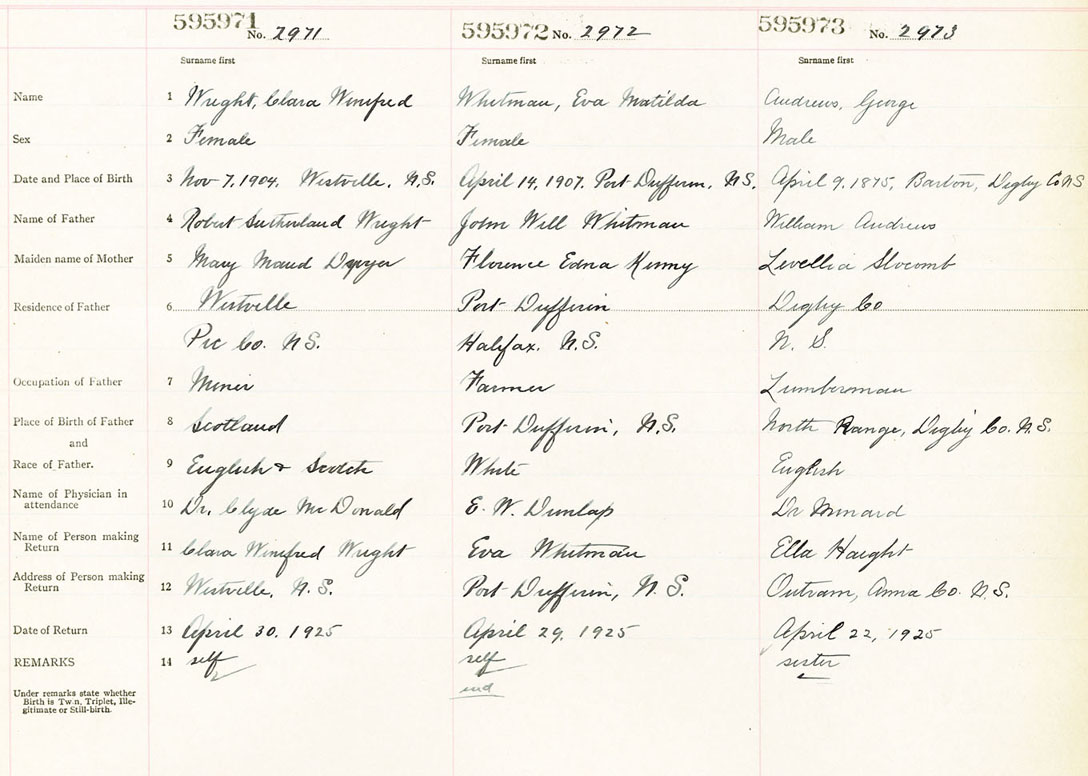 595971 No. 2971 595972 No. 2972 595973 No. 2973
Surname first Surname first Surname first
Name 1 Wright, Clara Winifred Whitman, Eva Matilda Andrews, George
Sex 2 Female Female Male
Date and Place of Birth 3 Nov 7, 1904. Westville, N.S. April 14, 1907. Port Dufferin, N.S. April 9, 1875, Barton, Digby Co N.S
Name of Father 4 Robert Sutherland Wright John Will Whitman William Andrews
Maiden name of Mother 5 Mary Maud Dwyer Florence Edna Kenny Levellia Slocomb
Residence of Father 6 Westville Port Dufferin Digby Co
Pic Co. N.S. Halifax. N.S. N. S.
Occupation of Father 7 Miner Farmer Lumberman
Place of Birth of Father 8 Scotland Port Dufferin, N.S. North Range, Digby Co. N.S.
and
Race of Father. 9 English & Scotch White English
Name of Physician in
attendance 10 Dr. Clyde McDonald E. W. Dunlap Dr Minard
Name of Person making
Return 11 Clara Winifred Wright Eva Whitman Ella Haight
Address of Person making
Return 12 Westville, N.S. Port Dufferin, N.S. Outram, Anna Co. N.S.
Date of Return 13 April 30. 1925 April 29, 1925 April 22, 1925
REMARKS 14 self self sister
ind
Under remarks state whether
Birth is Twin, Triplet, Ille-
gitimate or Still-birth.